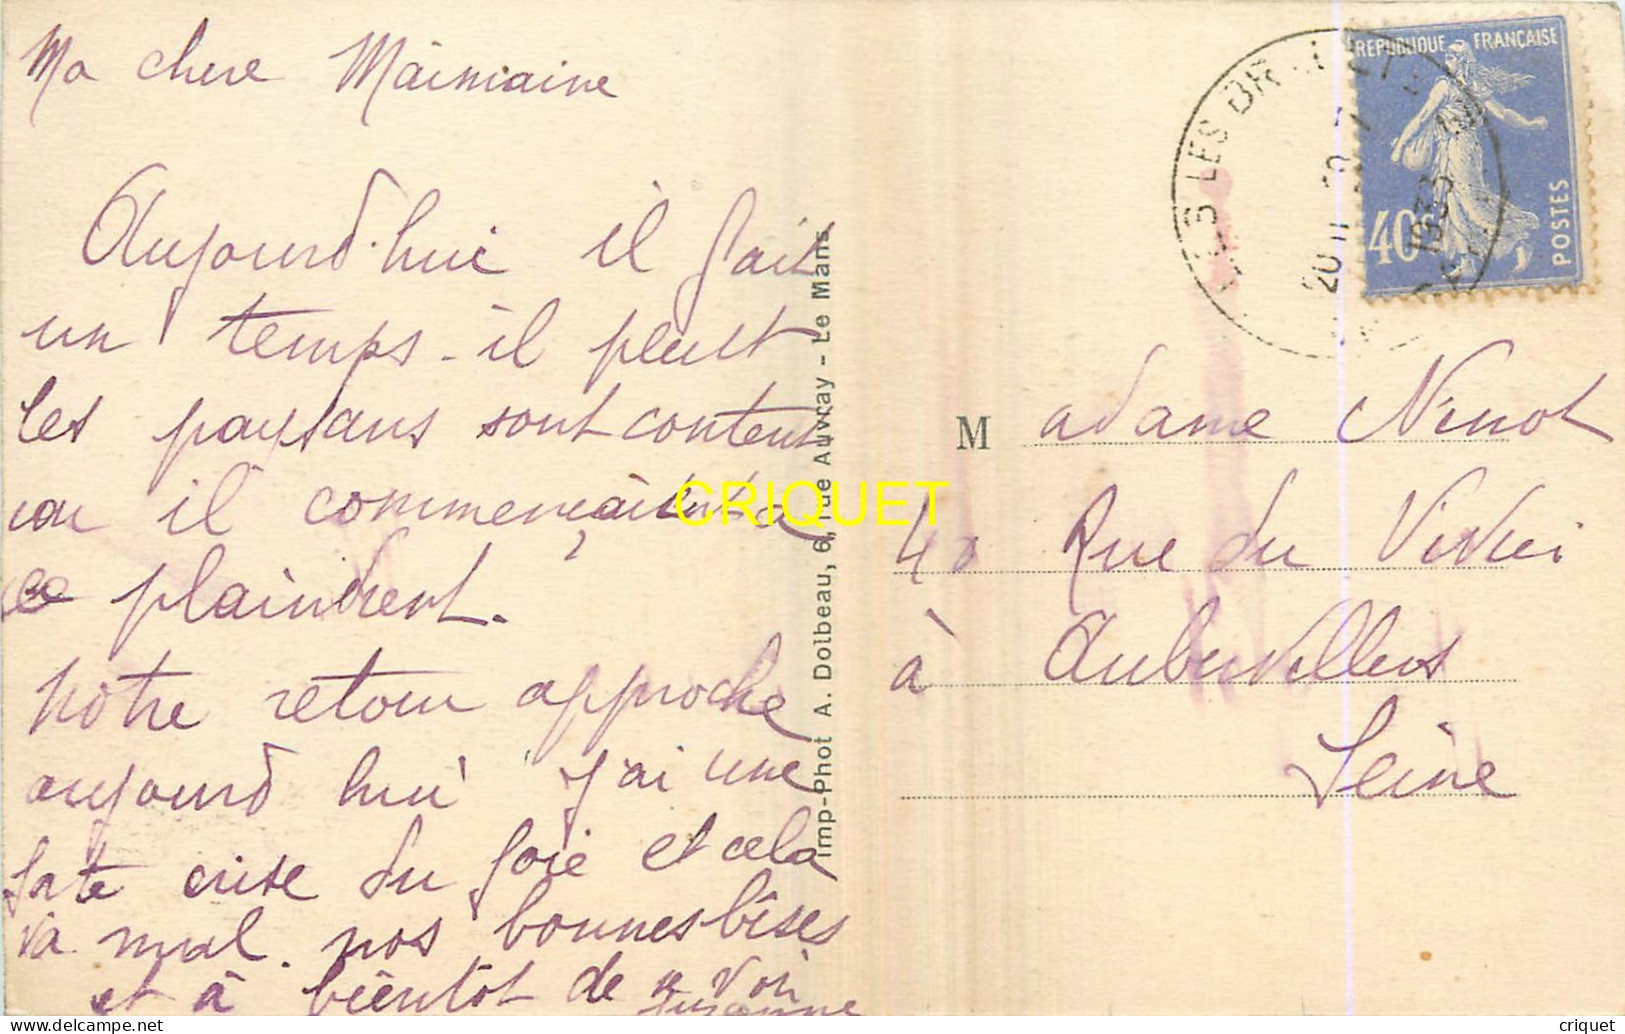 Ma chere Mainaine
Aujourd'hui il fait
un temps - il pleut
les paysans sont content
car il commençaient a
se plaindrent.
Notre retour approche
aujourd hui j'ai une
sate crise du foie et cela
va mal. nos bonnes bises
et à bientot de te voir
Suzanne
Imp-Phot A. Dolbeau, 6, rue Auvray - Le Mans
CRIQUET
REPUBLIQUE FRANÇAISE
40c
POSTES
LES
20 11
1933
Madame Ninot
40 Rue du Vivier
à Aubervilliers
Seine
criquet